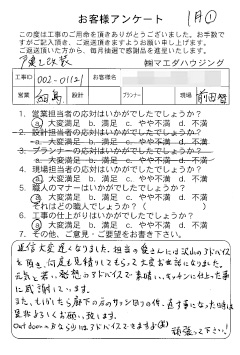 お客様アンケート 1月①
この度は工事のご用命を頂きありがとうございました。お手数で
すがご記入頂き、ご返送頂きますようお願い申し上げます。
ご返送頂いた方から、毎月抽選で感謝品を進呈いたします。
戸建改装 ㈱マエダハウジング
工事ID 002-0112 お客様名
営業 細島 設計 プランナー 現場 前田
1. 営業担当者の応対はいかがでしたでしょうか?
a 大変満足 b. 満足 c. やや不満 d. 不満
2. 設計担当者の応対はいかがでしたでしょうか?
a. 大変満足 b. 満足 c. やや不満 d. 不満
3. プランナーの応対はいかがでしたでしょうか?
a. 大変満足 b. 満足 c. やや不満 d. 不満
4. 現場担当者の応対はいかがでしたでしょうか?
a 大変満足 b. 満足 c. やや不満 d. 不満
5. 職人のマナーはいかがでしたでしょうか?
a 大変満足 b. 満足 c. やや不満 d. 不満
それはどの職人でしょうか? (
6. 工事の仕上がりはいかがでしたでしょうか?
a 大変満足 b. 満足 c. やや不満 d. 不満
7. その他、ご意見・ご要望をお書き下さい。
返信大変遅くなりました。担当の皆さんには沢山のアドバイス
を頂き、何度も見積りしてもらって大変お世話になりました。
元気と若い発想のアドバイスで素晴しいキッチンに仕上った事
に感謝しています。
また、もしかしたら廊下の方のサッシ回りの件、直す事になった時は
是非よろしくお願い致します。
頑張って下さい!